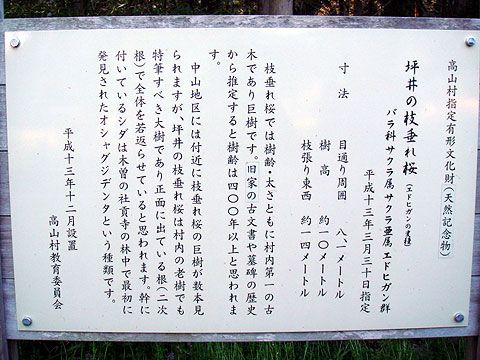 高山村指定有形文化財(天然記念物)
坪井の枝垂れ桜(エドヒガンの変種)
バラ科サクラ属サクラ亜属エドヒガン群
平成十三年三月三十日指定
寸法 目通り周囲 八、一メートル
樹高 約一〇メートル
枝張り東西 約一四メートル
枝垂れ桜では樹齢・太さともに村内第一の古
木であり巨樹です。旧家の古文書や墓碑の歴史
から推定すると樹齢は四〇〇年以上と思われま
す。
中山地区には付近に枝垂れ桜の巨樹が数本見
られますが、坪井の枝垂れ桜は村内の老樹でも
特筆すべき大樹であり正面に出ている根(二次
根)で全体を若返らせていると思われます。幹に
付いているシダは木曽の社貢寺の林中で最初に
発見されたオシャグジデンタという種類です。
平成十三年十二月設置
高山村教育委員会